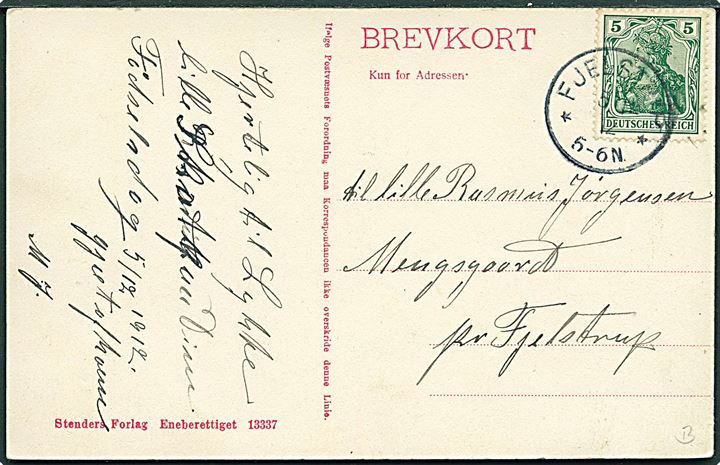 BREVKORT
Kun for Adressen.
5 5
DEUTSCHES REICH
FJELST
5-6N.
til lille Rasmus Jørgensen
Mengsgaardt
pr Fjelstrup
Ifølge Postvæsnets Forordning maa Korrespondancen ikke overskride denne Linie.
Hjertelig til Lykke
lille Din
Fødselsdag 5/12 1912.
M J.
Stenders Forlag Eneberettiget 13337
B